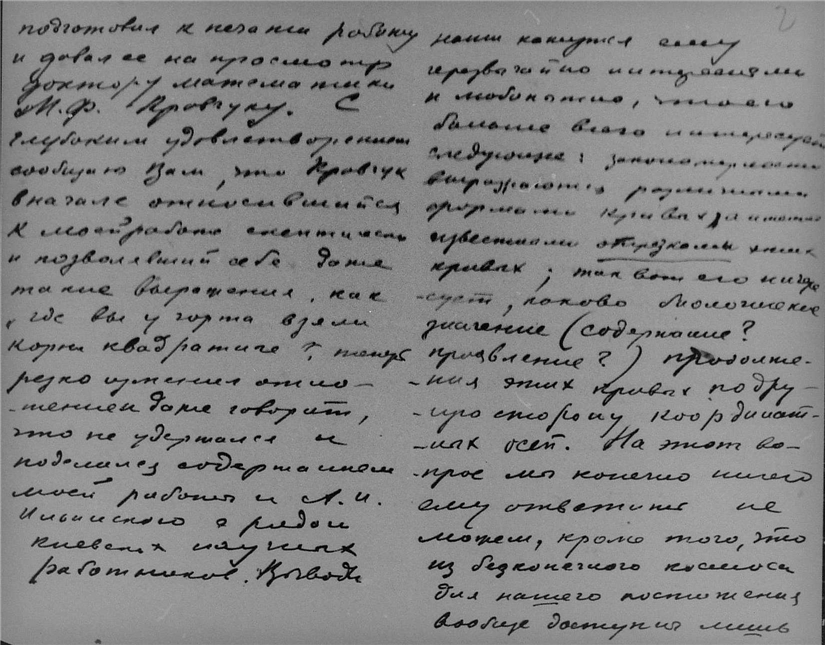 2
подготовил к печати работу
и довал ее на просмотр
доктору математики
М.Ф. Кровчуку. С
глубоким удовлетворением
сообщаю Вам, что Кровчук
вначале относившийся
к моей работе скептически
и позволявший себе даже
такие выражения, как
„где вы у чорта взяли
корни квадратные ?, теперь
резко изменил отно-
-шение и даже говорит,
что не удержался и
поделился содержанием
моей работы и А.И.
с рядом
киевских научных
работников. Выводы
наши кажутся ему
чрезвычайно интересными
и любопытно, что его
больше всего интересует
следующее: закономерности
выражаются различными
формами кривых, а именно
известными отрезками этих
кривых; так вот его интере-
-сует, каково биологическое
значение (содержание?
проявление?) продолже-
-ния этих кривых по дру-
-гую сторону координат-
-ных осей. На этот во-
-прос мы конечно ничего
ему ответить не
можем, кроме того, что
из безконечного космоса
для нашего постижения
вообще доступны лишь